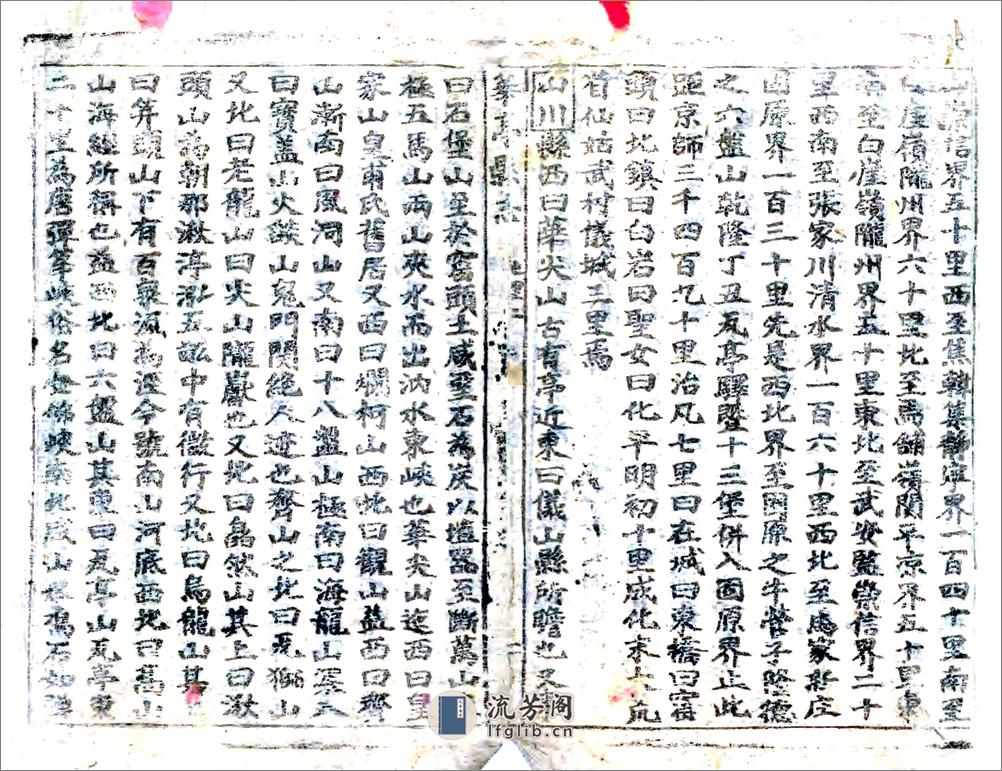 崇信界五十里西至焦韓集靜寧界一百四十里南至
崖嶺隴州界六十里北至馬舖嶺關平凉界五十里東
至白崖嶺隴州界五十里東北至武安監崇信界二十
里西南至張家川清水界一百六十里西北至馬家新庄
固原界一百三十里先是西北界至固原之牛營子隆德
之六盤山乾隆丁丑瓦亭驛暨十三堡併入固原界止此
距京師三千四百九十里治凡七里曰在城曰東橋曰窑
頭曰北鎮曰白岩曰聖女曰化平明初十里成化末荒
省仙姑武村儀城三里焉
山川縣西曰華尖山古有亭近東曰儀山縣所瞻也又
華亭縣志
曰石堡山至於窑頭土咸至石為炭以埴器至斷萬山
極五馬山兩山夾水而出汭水東峽也華尖山迤西曰皇
家山皇甫氏舊居又西曰爛柯山西北曰觀山益西曰齊
山漸南曰風洞山又南曰十八盤山極南曰海龍山
曰寶盖山火燄山鬼門關絶人迹也齊山之北曰瓦獅山
又北曰老龍山曰尖山隴巖也又北曰截然山其上曰湫
頭山為朝那湫渟泓五畝中有微行又北曰烏龍山其
曰笄頭山下有百泉流為涇今號南山河底西北曰高山
山海經所稱也益西北曰六盤山其東曰瓦亭山瓦亭東
二十里為唐彈箏峽俗名金佛峽
流芳阁
lfglib.cn